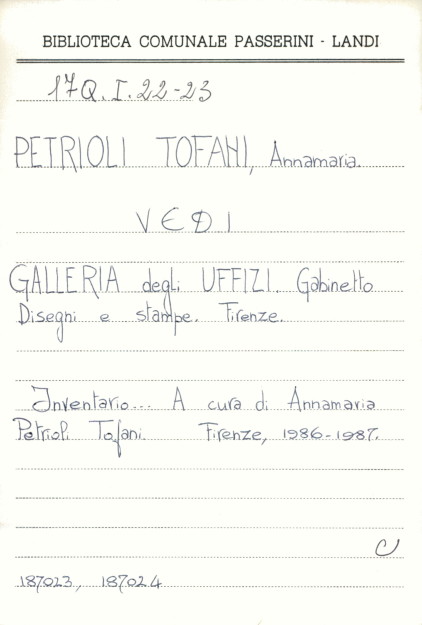 BIBLIOTECA COMUNALE PASSERINI - LANDI
17Q.I.22-23
PETRIOLI TOFANI, Annamaria.
VEDI
GALLERIA degli UFFIZI. Gabinetto
Disegni e stampe. Firenze.
Inventario... A cura di Annamaria
Petrioli Tofani. Firenze, 1986-1987.
C
187023, 187024